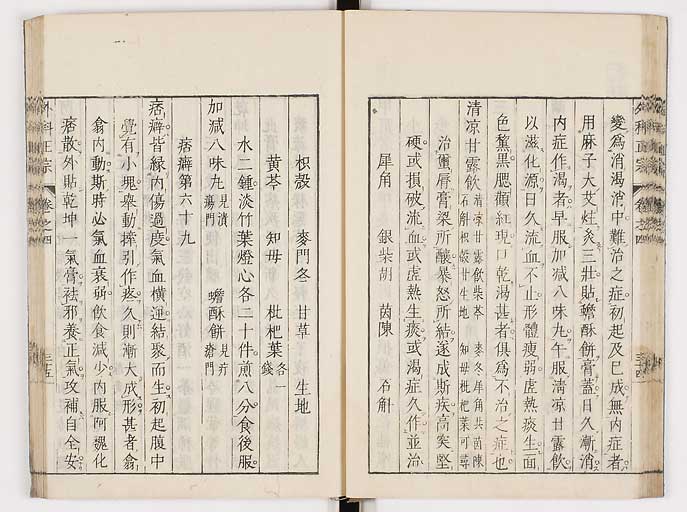 變為消渴消中難治之症初起及已成無內症者
用麻子大艾炷灸三壯貼蟾酥餅膏蓋日久漸消
內症作渴者早服加減八味丸午服清凉甘露飲
以滋化源日久流血不止形體瘦弱虛熱痰生面
色黧黑腮顴紅現口乾渴甚者俱為不治之症也
清凉甘露飲 清凉甘露飲柴芩 麥冬犀角共茵陳
石斛枳殼甘生地 知母枇杷葉可尋
治繭唇膏粱所釀暴怒所結遂成斯疾高突堅
硬或損破流血或虛熱生痰或渴症久作並治
犀角 銀柴胡 茵陳 石斛
枳殼 麥門冬 甘草 生地
黃芩 知母 枇杷葉 各一錢
水二鍾淡竹葉燈心各二十件煎八分食後服
加減八味丸 見潰瘍門 蟾酥餅 見疔瘡門
痞癖第六十九
痞癖皆緣內傷過度氣血橫逆結聚而生初起腹中
覺有小塊舉動牽引作疼久則漸大成形甚者翕
翕內動斯時必氣血衰弱飲食減少內服阿魏化
痞散外貼乾坤一氣膏祛邪養正氣攻補自全安
外科正宗 卷之四 三十四
外科正宗 卷之四 三十五